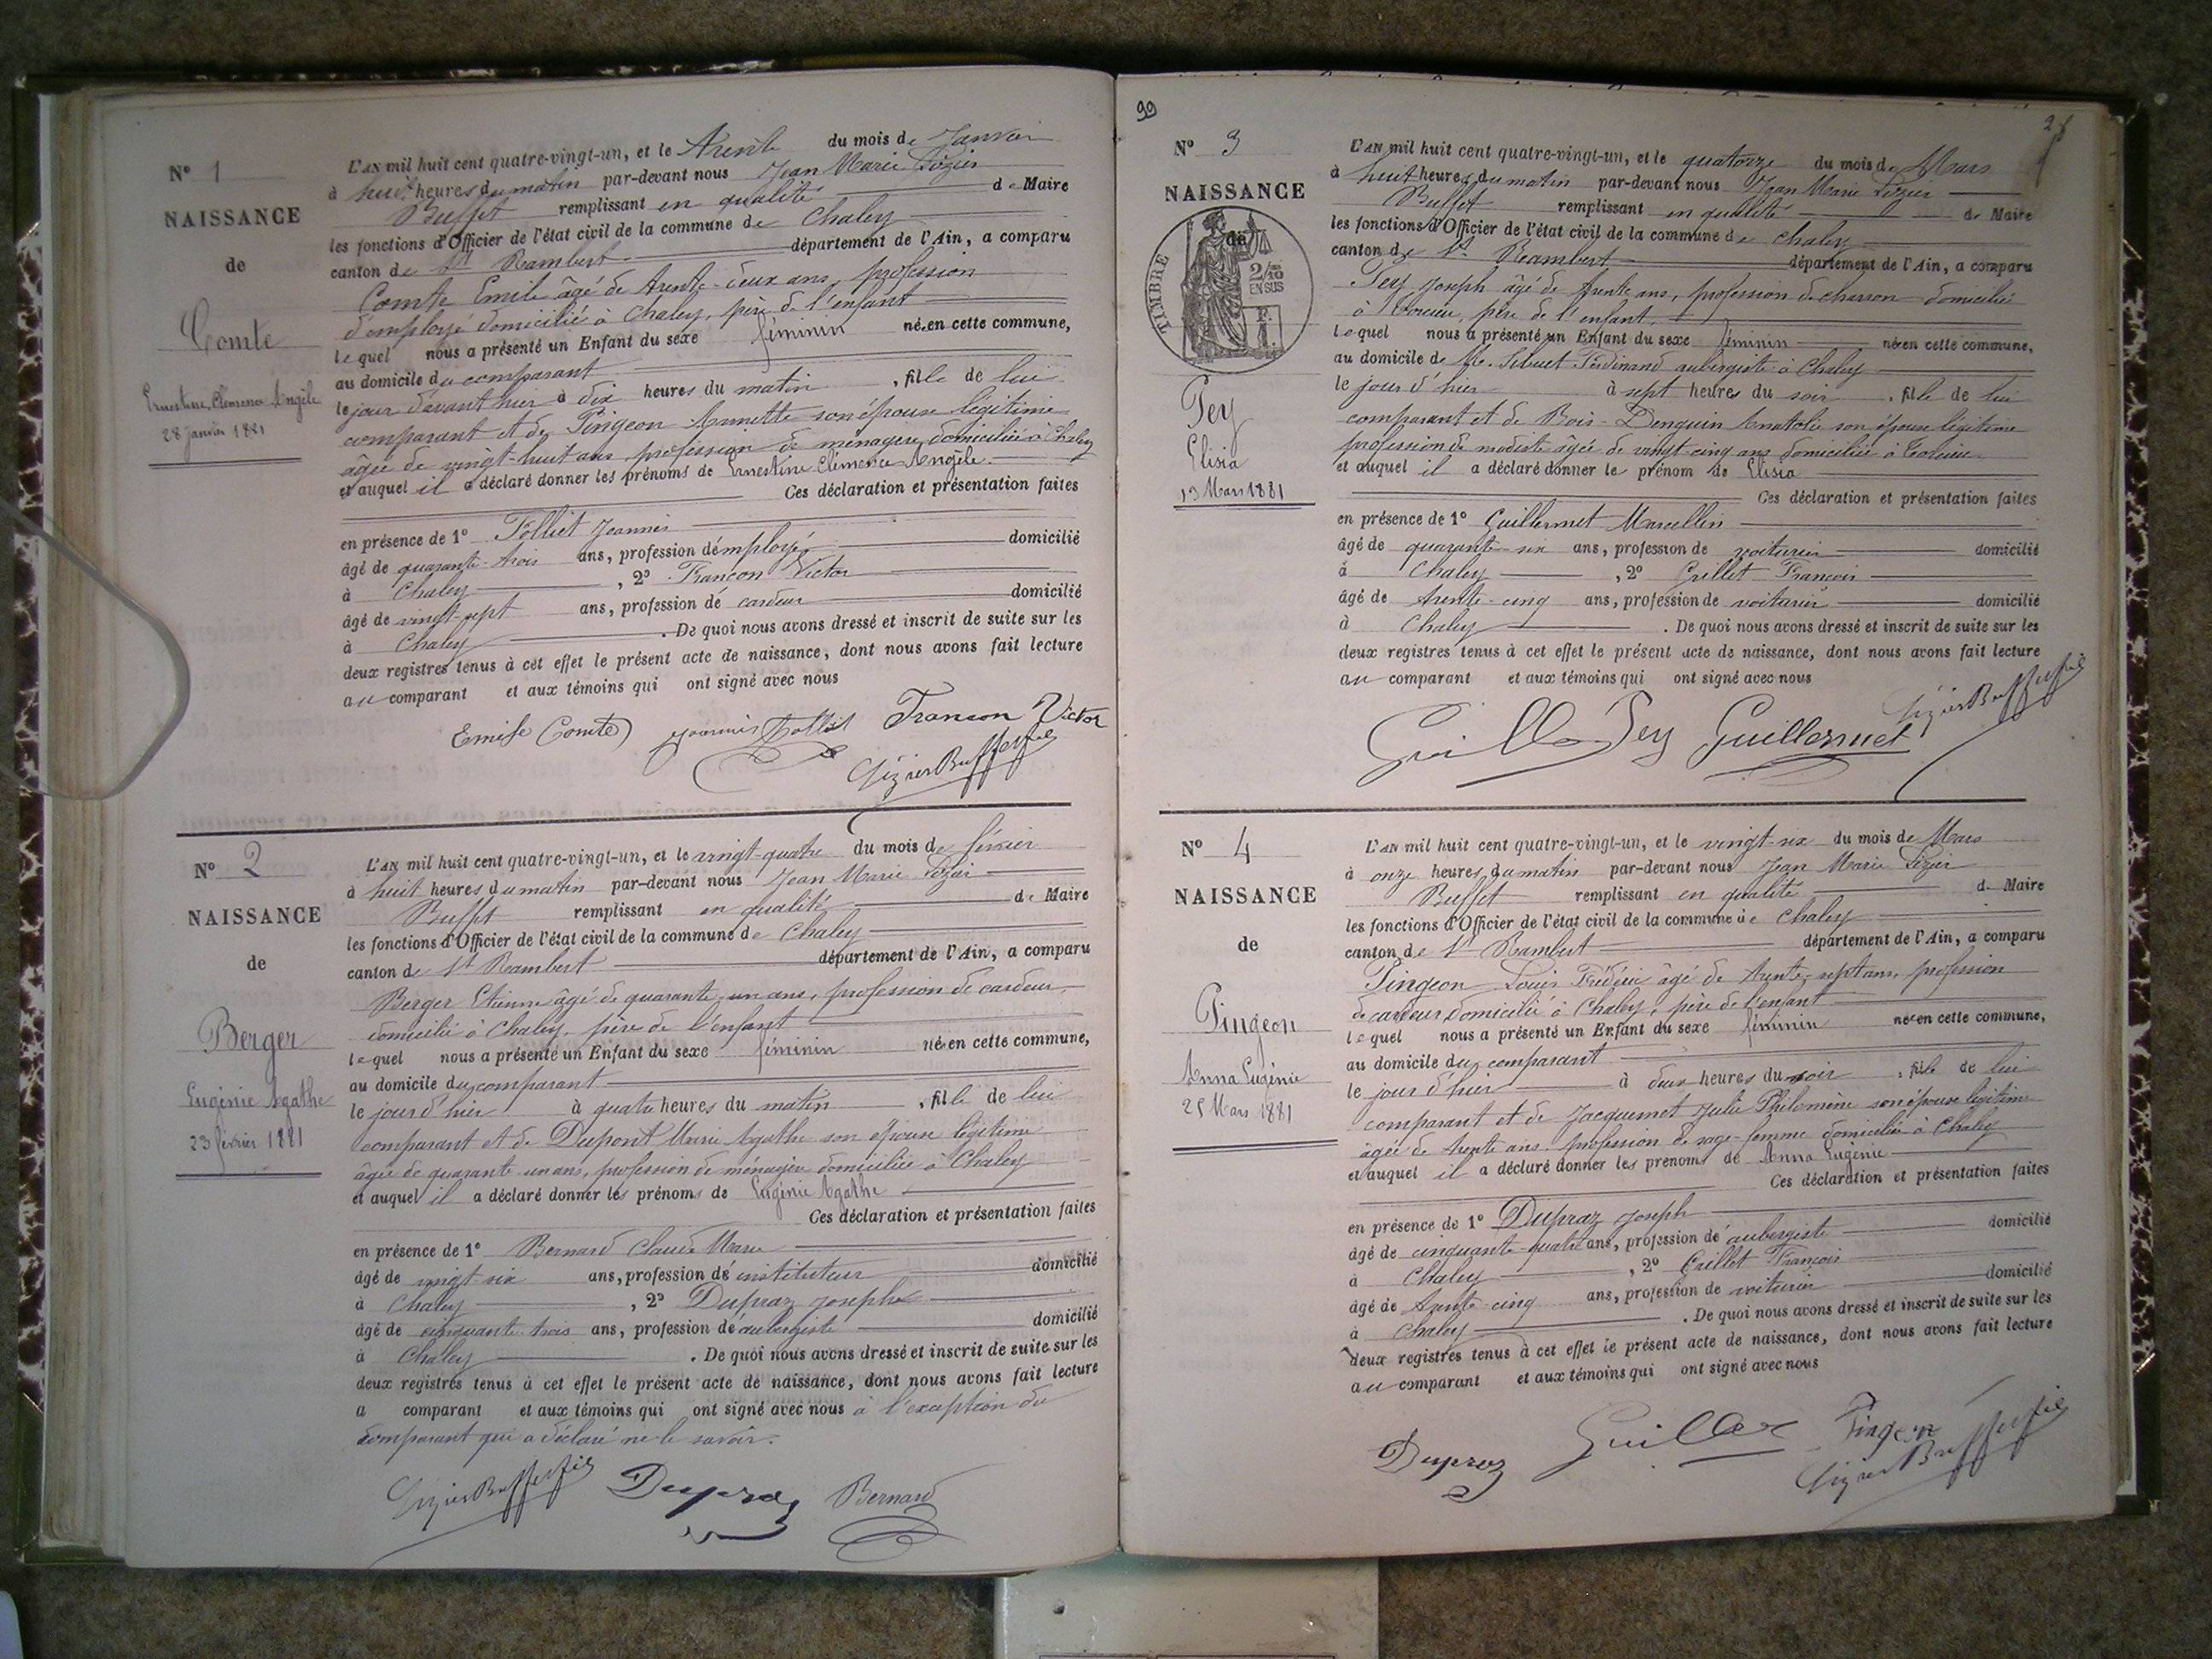 Nº 1
NAISSANCE
de
Comte
Ernestine Clémence Angèle
28 janvier 1881
L'AN mil huit cent quatre-vingt-un, et le Trente du mois de Janvier
à huit heures du matin par-devant nous Jean Marie Lizier
Buffet remplissant en qualité de Maire
les fonctions d'Officier de l'état civil de la commune de Chaley
canton de St Rambert département de l'Ain, a comparu
Comte Emile âgé de trente-deux ans, profession
d'employé domicilié à Chaley, père de l'enfant
lequel nous a présenté un Enfant du sexe féminin née en cette commune,
au domicile du comparant
le jour d'avant hier à dix heures du matin, fille de lui
comparant et de Pingeon Annette son épouse légitime
âgée de vingt-huit ans, profession de ménagère domiciliée à Chaley
et auquel il a déclaré donner les prénoms de Ernestine Clémence Angèle.
Ces déclaration et présentation faites
en présence de 1º Tolliet Joannis
âgé de quarante-trois ans, profession d'employé domicilié
à Chaley, 2º Francon Victor
âgé de vingt-sept ans, profession de cardeur domicilié
à Chaley. De quoi nous avons dressé et inscrit de suite sur les
deux registres tenus à cet effet le présent acte de naissance, dont nous avons fait lecture
au comparant et aux témoins qui ont signé avec nous
Emile Comte Joannis Tolliet Francon Victor
Lizier Buffet fils
Nº 2
NAISSANCE
de
Berger
Eugénie Agathe
23 février 1881
L'AN mil huit cent quatre-vingt-un, et le vingt-quatre du mois de février
à huit heures du matin par-devant nous Jean Marie Lizier
Buffet remplissant en qualité de Maire
les fonctions d'Officier de l'état civil de la commune de Chaley
canton de St Rambert département de l'Ain, a comparu
Berger Etienne âgé de quarante-un ans, profession de cardeur
domicilié à Chaley, père de l'enfant
lequel nous a présenté un Enfant du sexe féminin née en cette commune,
au domicile du comparant
le jour d'hier à quatre heures du matin, fille de lui
comparant et de Dupont Marie Agathe son épouse légitime
âgée de quarante-un ans, profession de ménagère domiciliée à Chaley
et auquel il a déclaré donner les prénoms de Eugénie Agathe
Ces déclaration et présentation faites
en présence de 1º Bernard Claude Marie
âgé de vingt-six ans, profession de instituteur domicilié
à Chaley, 2º Dupraz Joseph
âgé de cinquante-trois ans, profession de aubergiste domicilié
à Chaley. De quoi nous avons dressé et inscrit de suite sur les
deux registres tenus à cet effet le présent acte de naissance, dont nous avons fait lecture
a comparant et aux témoins qui ont signé avec nous à l'exception du
comparant qui a déclaré ne le savoir.
Lizier Buffet fils Dupraz Bernard
99
28
Nº 3
NAISSANCE
de
TIMBRE
2/10
EN SUS
Pey
Elisia
13 Mars 1881
L'AN mil huit cent quatre-vingt-un, et le quatorze du mois de Mars
à huit heures du matin par-devant nous Jean Marie Lizier
Buffet remplissant en qualité de Maire
les fonctions d'Officier de l'état civil de la commune de Chaley
canton de St Rambert département de l'Ain, a comparu
Pey Joseph âgé de trente ans, profession de charron domicilié
à père de l'enfant
lequel nous a présenté un Enfant du sexe féminin née en cette commune,
au domicile de Ferdinand aubergiste à Chaley
le jour d'hier à sept heures du soir, fille de lui
comparant et de Bois-Denguin Anatolie son épouse légitime
profession de modiste âgée de vingt-cinq ans domiciliée à
et auquel il a déclaré donner le prénom de Elisia
Ces déclaration et présentation faites
en présence de 1º Guillermet Marcellin
âgé de quarante-six ans, profession de voiturier domicilié
à Chaley, 2º Grillet François
âgé de trente-cinq ans, profession de voiturier domicilié
à Chaley. De quoi nous avons dressé et inscrit de suite sur les
deux registres tenus à cet effet le présent acte de naissance, dont nous avons fait lecture
au comparant et aux témoins qui ont signé avec nous
Pey Guillermet Lizier Buffet fils
Nº 4
NAISSANCE
de
Pingeon
Anna Eugénie
25 Mars 1881
L'AN mil huit cent quatre-vingt-un, et le vingt-six du mois de Mars
à onze heures du matin par-devant nous Jean Marie Lizier
Buffet remplissant en qualité de Maire
les fonctions d'Officier de l'état civil de la commune de Chaley
canton de St Rambert département de l'Ain, a comparu
Pingeon Louis Frédéric âgé de trente-sept ans, profession
de cardeur domicilié à Chaley, père de l'enfant
lequel nous a présenté un Enfant du sexe féminin née en cette commune,
au domicile du comparant
le jour d'hier à deux heures du soir, fille de lui
comparant et de Jacquemet Julie Philomène son épouse légitime
âgée de trente ans profession de sage-femme domiciliée à Chaley
et auquel il a déclaré donner les prénoms de Anna Eugénie
Ces déclaration et présentation faites
en présence de 1º Dupraz Joseph
âgé de cinquante-quatre ans, profession de aubergiste domicilié
à Chaley, 2º Grillet François
âgé de trente-cinq ans, profession de voiturier domicilié
à Chaley. De quoi nous avons dressé et inscrit de suite sur les
deux registres tenus à cet effet le présent acte de naissance, dont nous avons fait lecture
au comparant et aux témoins qui ont signé avec nous
Dupraz Pingeon
Lizier Buffet fils